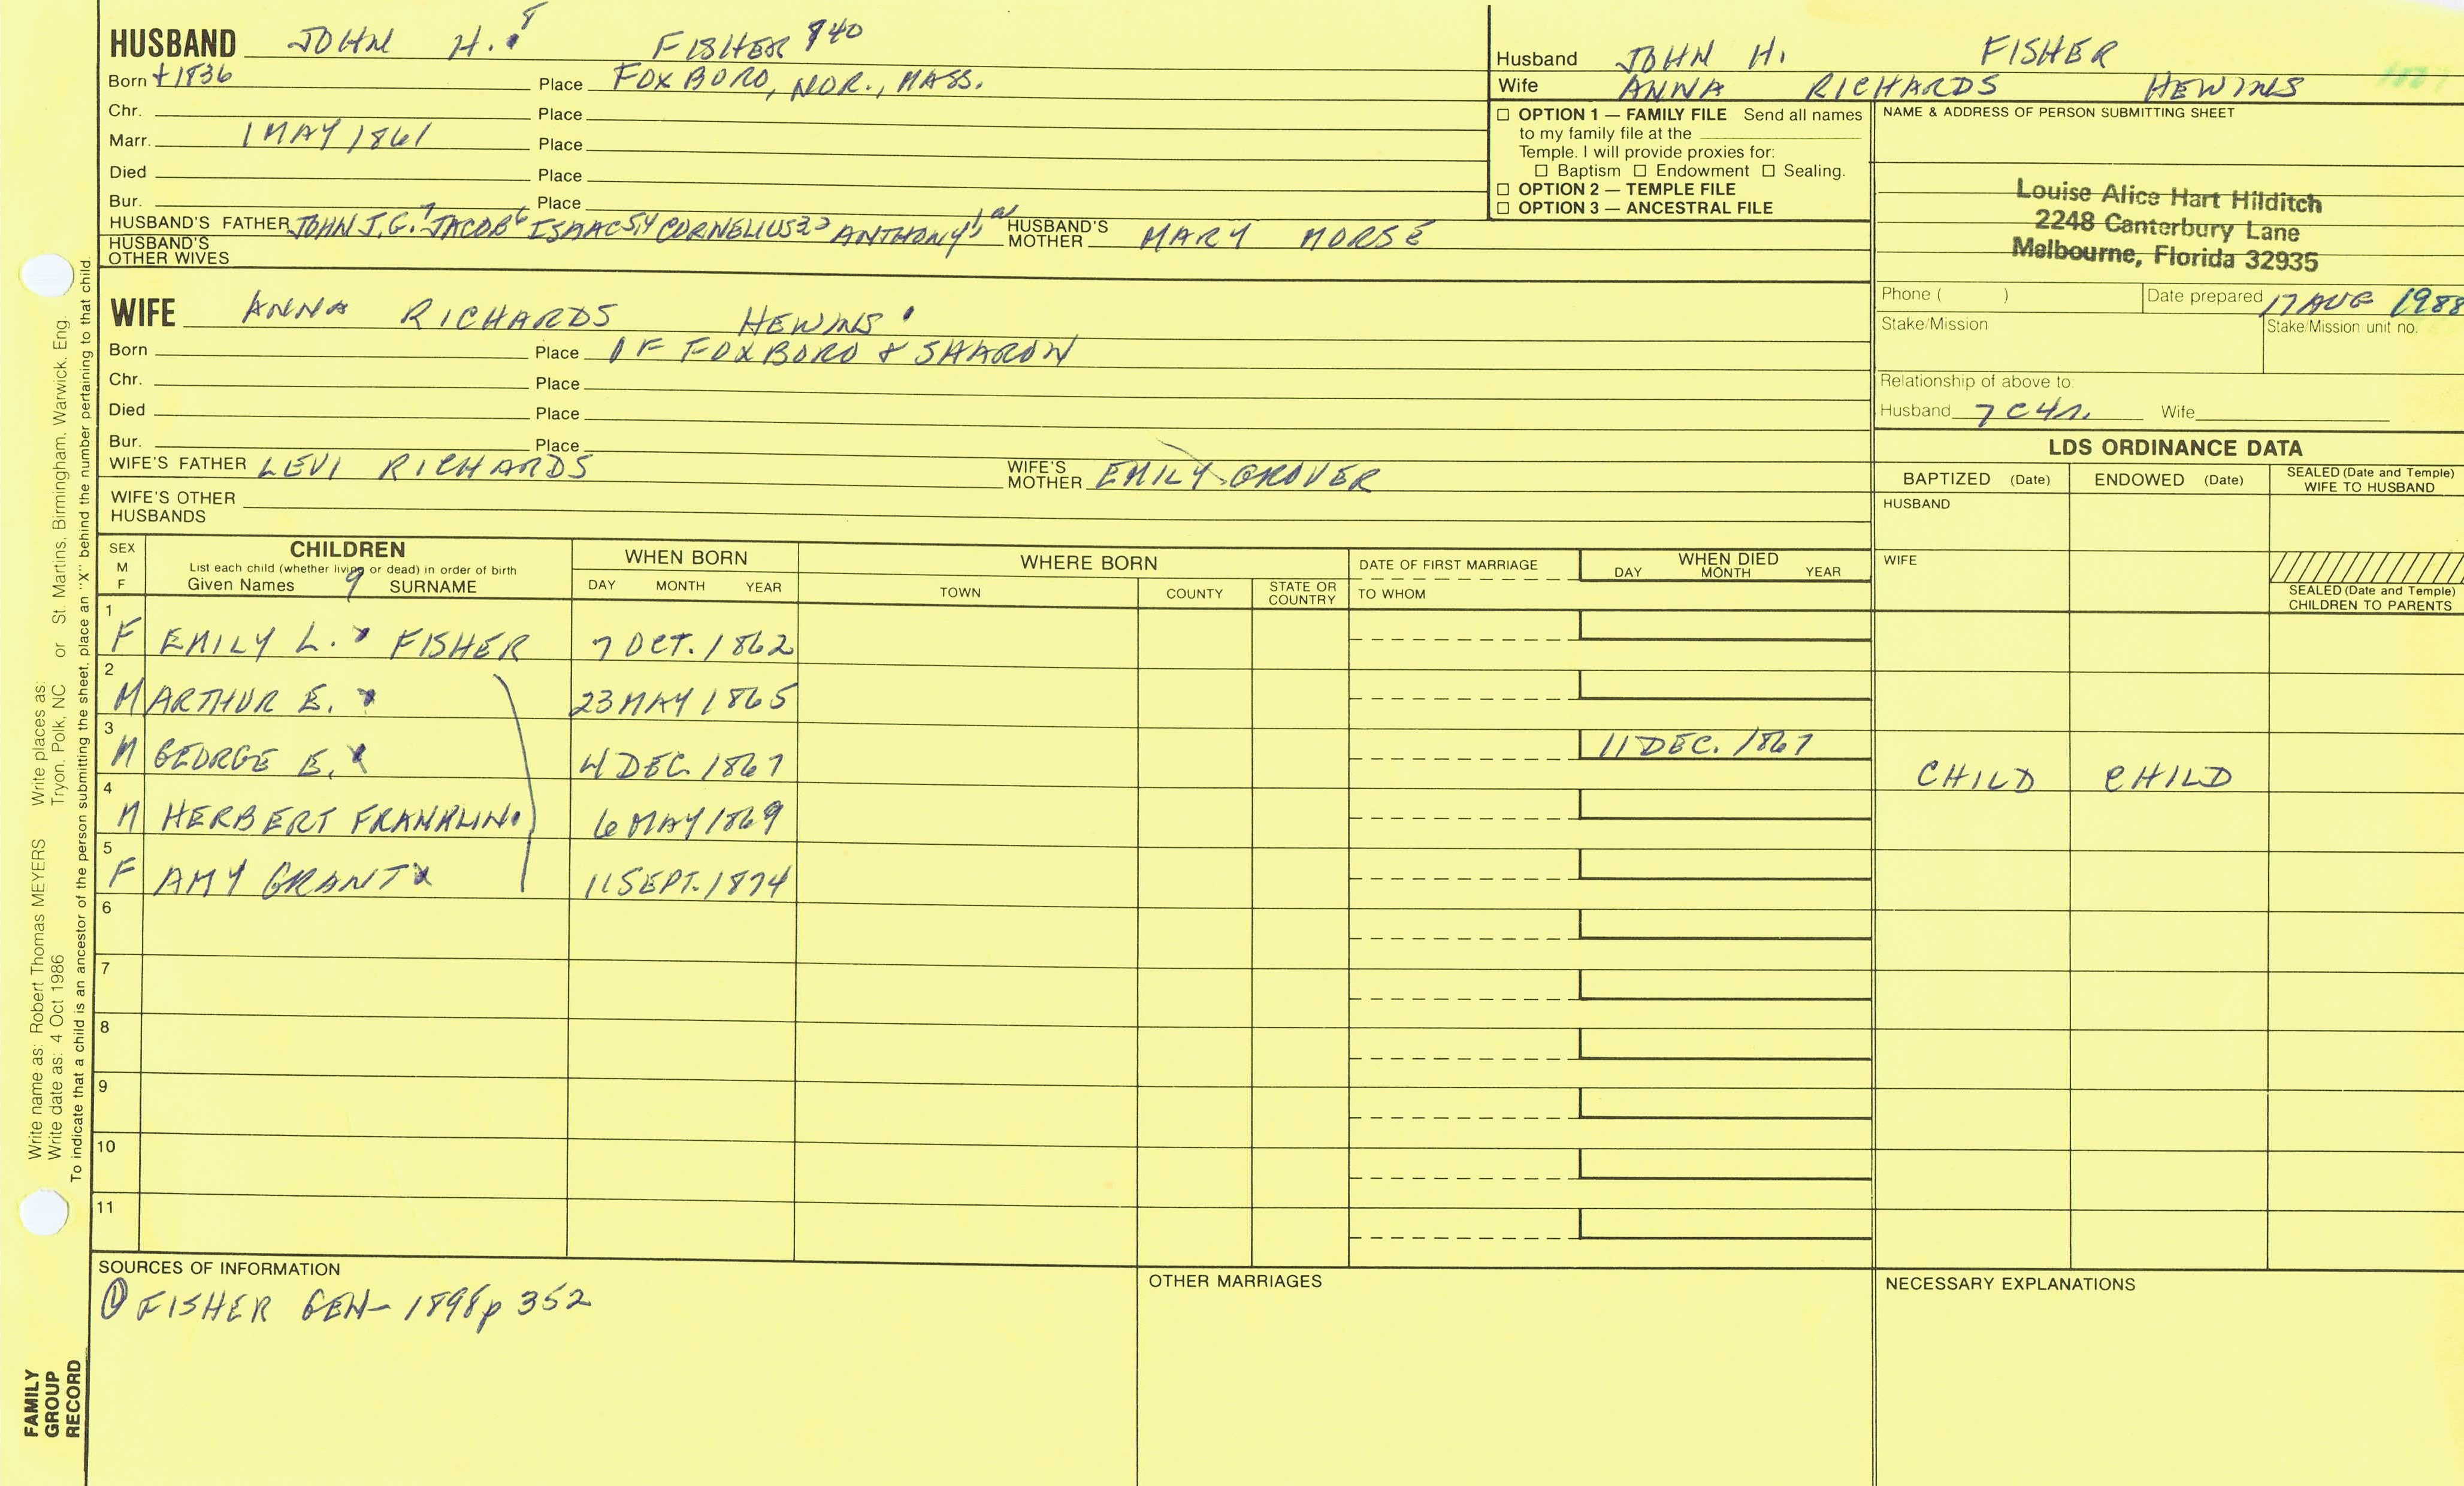 HUSBAND JOHN H. 8 FISHER 940
Born ±1836 Place FOXBORO, NOR., MASS.
Chr. Place
Marr. 1 MAY 1861 Place
Died Place
Bur. Place
HUSBAND'S FATHER JOHN J.G.7 JACOB6 ISAAC54 CORNELIUS32 ANTHONY1 HUSBAND'S MOTHER MARY MORSE
HUSBAND'S OTHER WIVES
WIFE ANNA RICHARDS HEWINS
Born Place OF FOXBORO & SHARON
Chr. Place
Died Place
Bur. Place
WIFE'S FATHER LEVI RICHARDS WIFE'S MOTHER EMILY GROVER
WIFE'S OTHER HUSBANDS
Husband JOHN H. FISHER
Wife ANNA RICHARDS HEWINS
☐ OPTION 1 — FAMILY FILE Send all names
to my family file at the
Temple. I will provide proxies for:
☐ Baptism ☐ Endowment ☐ Sealing.
☐ OPTION 2 — TEMPLE FILE
☐ OPTION 3 — ANCESTRAL FILE
NAME & ADDRESS OF PERSON SUBMITTING SHEET
Louise Alice Hart Hilditch
2248 Canterbury Lane
Melbourne, Florida 32935
Phone ( ) Date prepared 17 AUG 1988
Stake/Mission Stake/Mission unit no.
Relationship of above to:
Husband 7C4r. Wife
LDS ORDINANCE DATA
BAPTIZED (Date) ENDOWED (Date) SEALED (Date and Temple) WIFE TO HUSBAND
HUSBAND
WIFE
SEALED (Date and Temple) CHILDREN TO PARENTS
SEX M F
CHILDREN
List each child (whether living or dead) in order of birth
Given Names 9 SURNAME
WHEN BORN
DAY MONTH YEAR
WHERE BORN
TOWN COUNTY STATE OR COUNTRY
DATE OF FIRST MARRIAGE
TO WHOM
WHEN DIED
DAY MONTH YEAR
1 F EMILY L. FISHER 7 OCT. 1862
2 M ARTHUR E. 23 MAY 1865
3 M GEORGE E. 4 DEC. 1867 11 DEC. 1867 CHILD CHILD
4 M HERBERT FRANKLIN 6 MAY 1869
5 F AMY GRANT 11 SEPT. 1874
6
7
8
9
10
11
SOURCES OF INFORMATION
① FISHER GEN- 1898 p 352
OTHER MARRIAGES
NECESSARY EXPLANATIONS
Write name as: Robert Thomas MEYERS Write places as: St. Martins, Birmingham, Warwick, Eng.
Write date as: 4 Oct 1986 Tryon, Polk, NC or
To indicate that a child is an ancestor of the person submitting the sheet, place an "X" behind the number pertaining to that child.
FAMILY
GROUP
RECORD